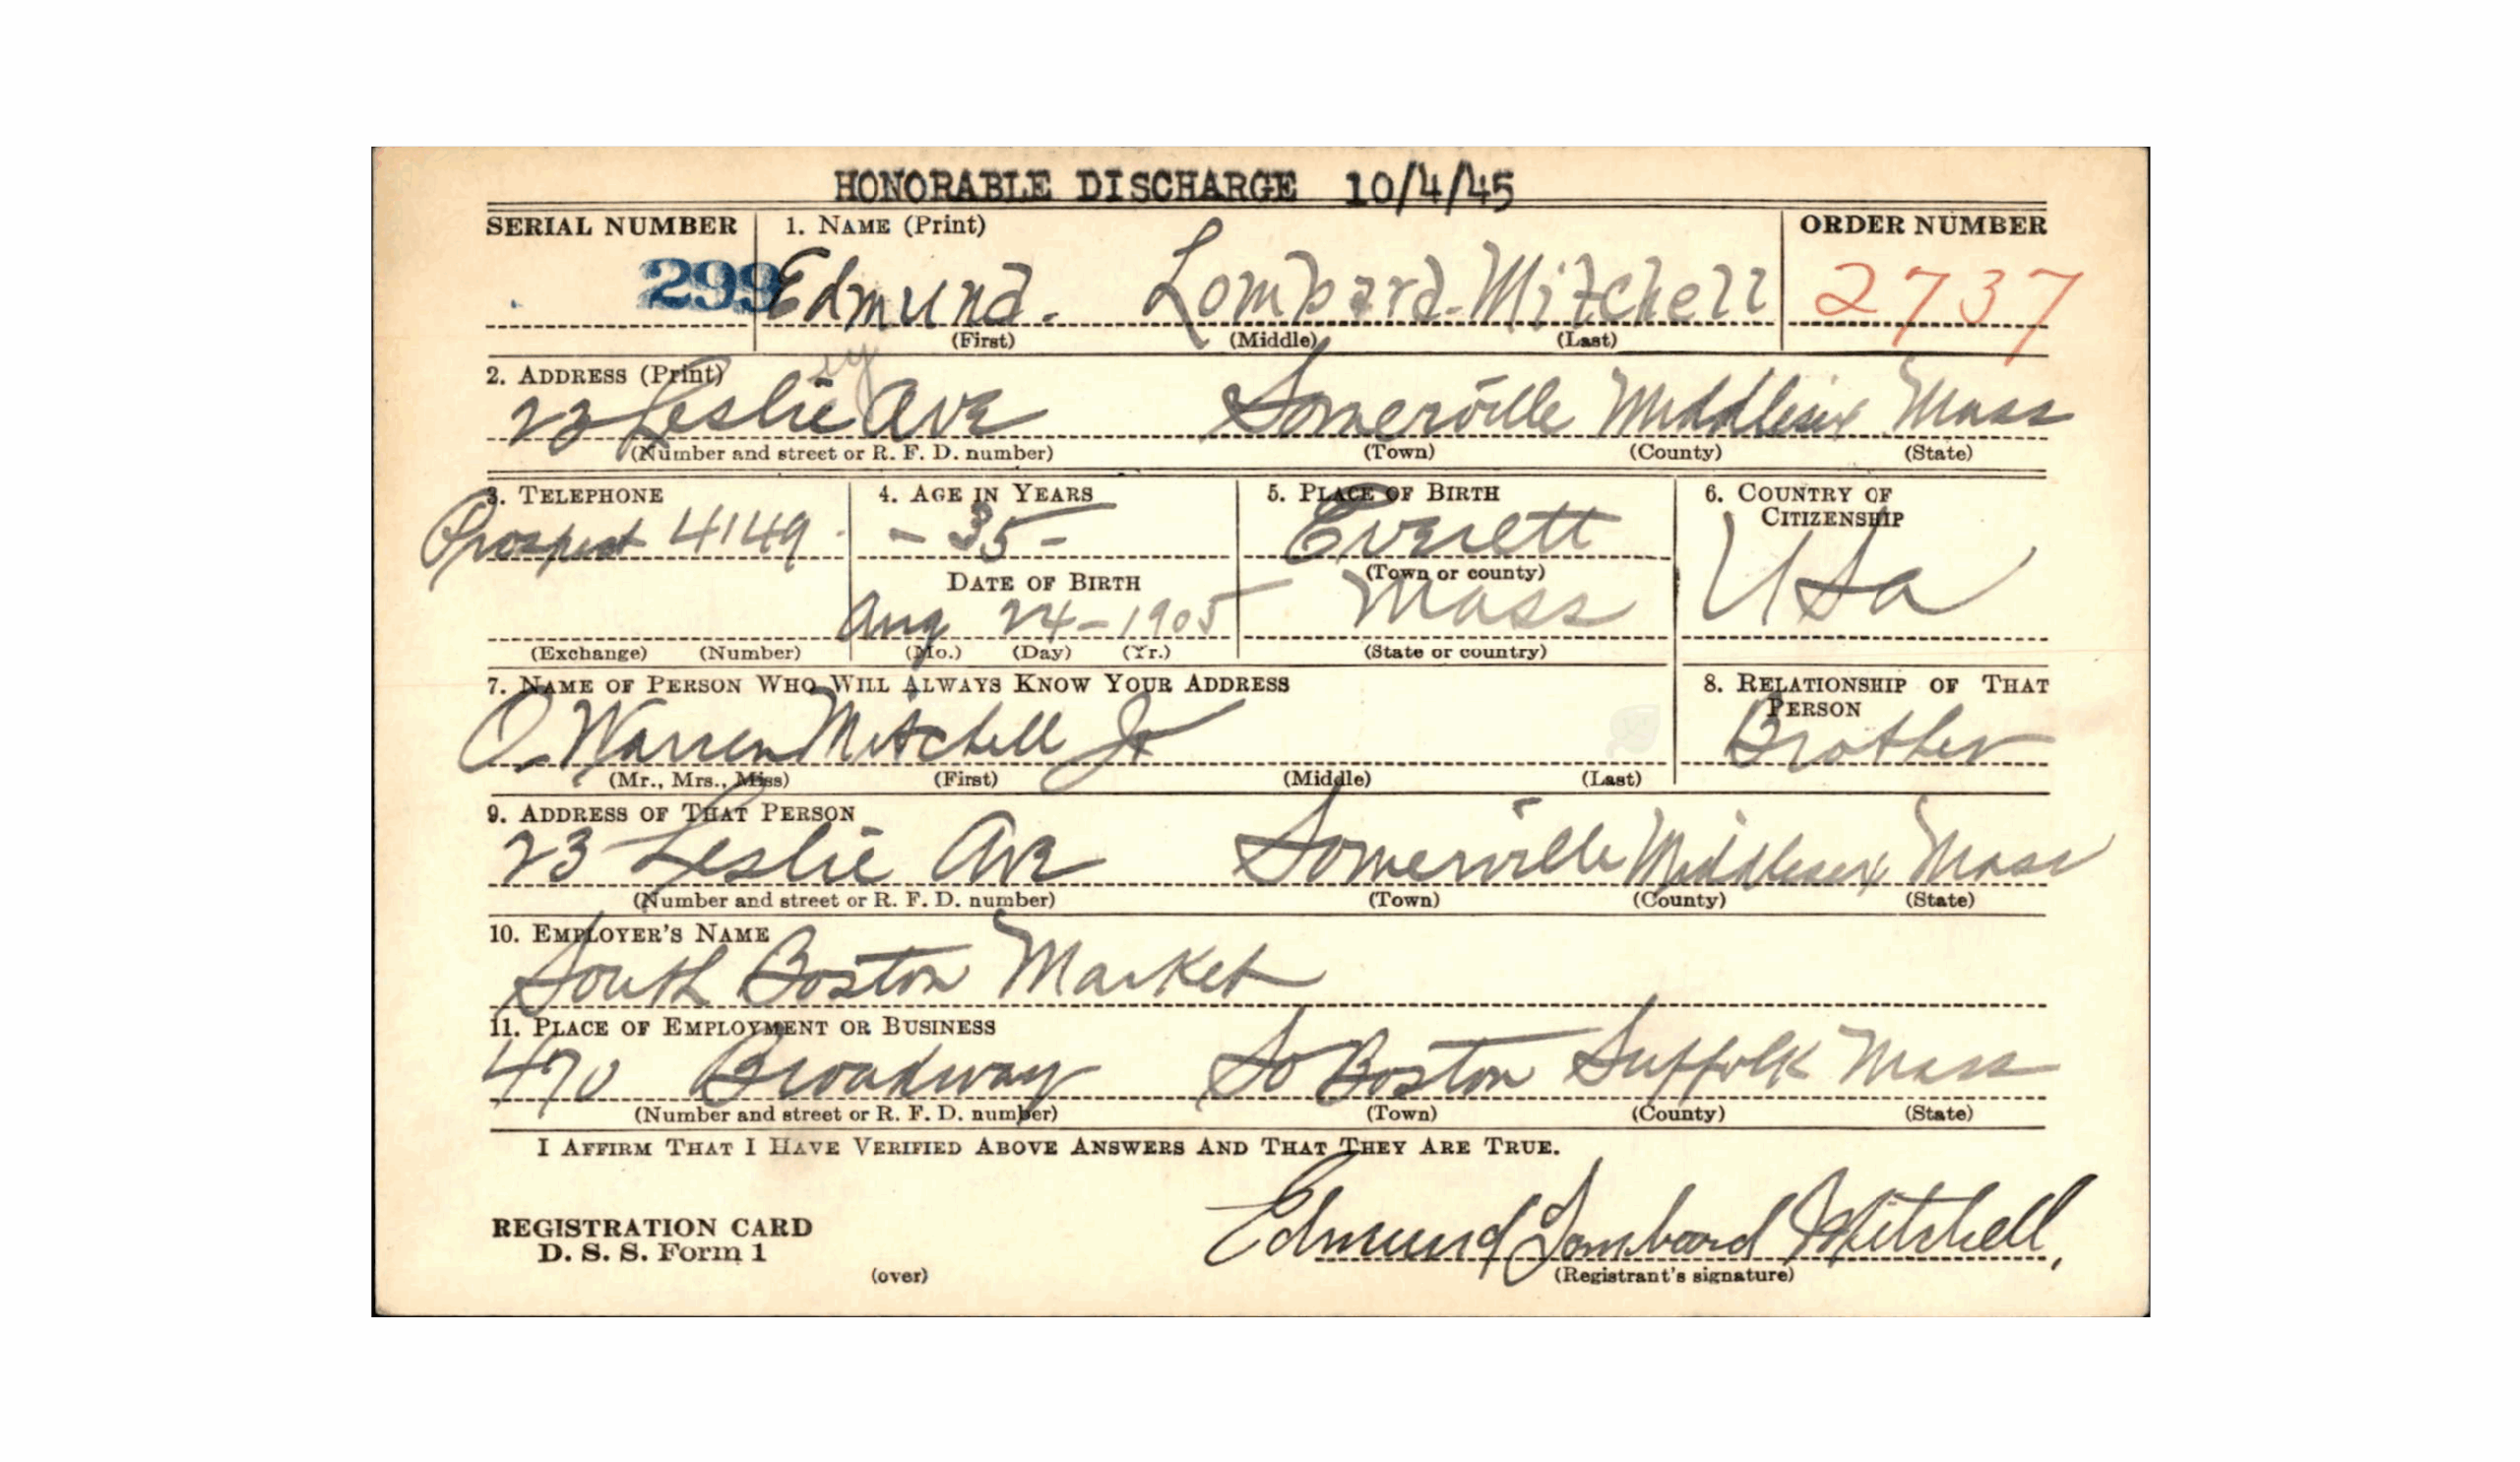 HONORABLE DISCHARGE 10/4/45
SERIAL NUMBER 1. NAME (Print) ORDER NUMBER
299 Edmund. Lombard. Mitchell 2737
(First) (Middle) (Last)
2. ADDRESS (Print)
23 Leslie Ave Somerville Middlesex Mass
(Number and street or R. F. D. number) (Town) (County) (State)
3. TELEPHONE 4. AGE IN YEARS 5. PLACE OF BIRTH 6. COUNTRY OF
CITIZENSHIP
Prospect 4149 - 35 - Everett USA
DATE OF BIRTH (Town or county)
Aug 24-1905 Mass
(Exchange) (Number) (Mo.) (Day) (Yr.) (State or country)
7. NAME OF PERSON WHO WILL ALWAYS KNOW YOUR ADDRESS 8. RELATIONSHIP OF THAT
PERSON
O. Warren Mitchell Jr Brother
(Mr., Mrs., Miss) (First) (Middle) (Last)
9. ADDRESS OF THAT PERSON
23 Leslie Ave Somerville Middlesex Mass
(Number and street or R. F. D. number) (Town) (County) (State)
10. EMPLOYER'S NAME
South Boston Market
11. PLACE OF EMPLOYMENT OR BUSINESS
470 Broadway So Boston Suffolk Mass
(Number and street or R. F. D. number) (Town) (County) (State)
I AFFIRM THAT I HAVE VERIFIED ABOVE ANSWERS AND THAT THEY ARE TRUE.
REGISTRATION CARD
D. S. S. Form 1 Edmund Lombard Mitchell,
(over) (Registrant's signature)